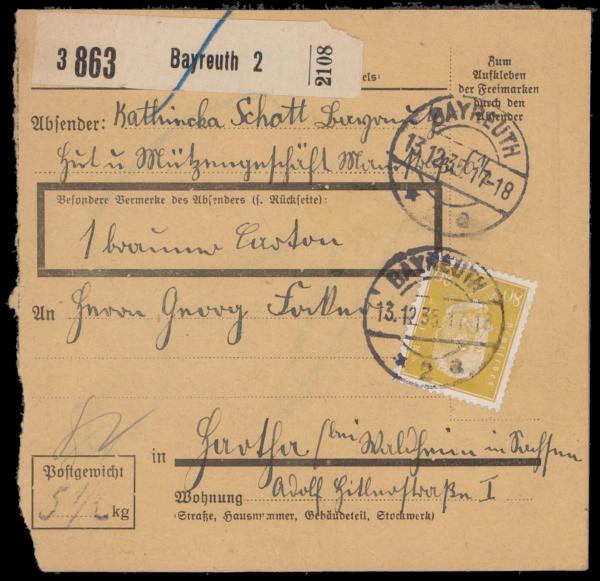 3 863 Bayreuth 2 2108
Zum
Aufkleben
der Freimarken
durch den
Absender
Absender: Kathincka Schott
Hut u Mützengeschäft
Besondere Vermerke des Absenders (s. Rückseite):
1 brauner Carton
An Herrn Georg
BAYREUTH
13.12.35.17-18
2 a
BAYREUTH
13.12.35.17-18
2 a
80
in Hartha / bei Waldheim in Sachsen
Postgewicht
5 1/2 kg
Wohnung Adolf Hitlerstraße I
(Straße, Hausnummer, Gebäudeteil, Stockwerk)